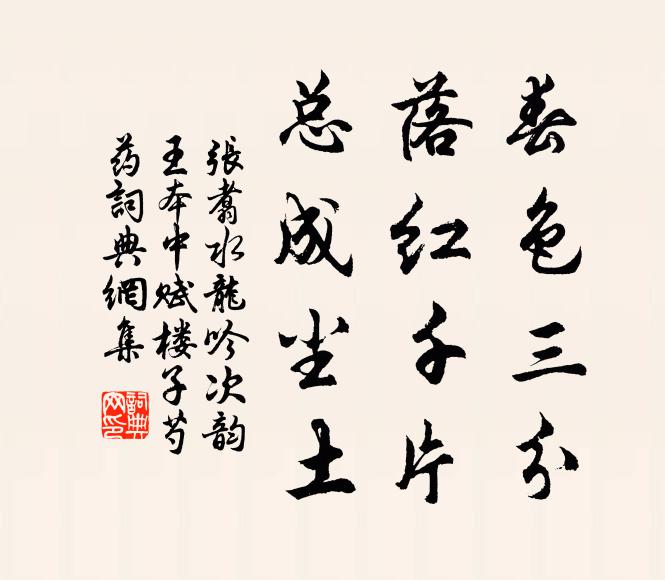 春色三分
落红千片
总成尘土
張翥水龍吟次韵
王本中赋楼子芍
药詞典網集
詞典
网印